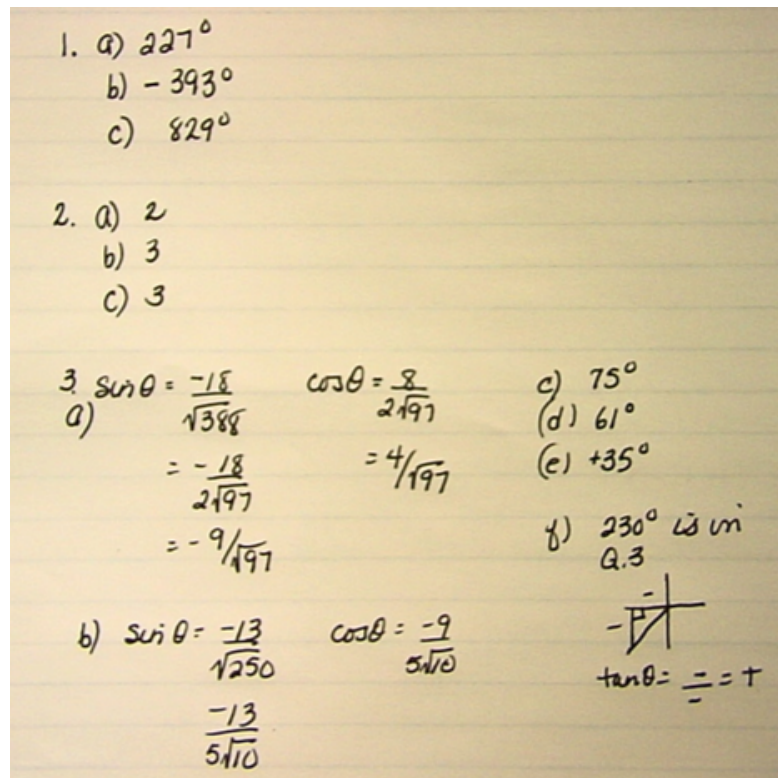 1. a) 227°
b) - 393°
c) 829°
2. a) 2
b) 3
c) 3
3. a) sin θ = -18/√388
= -18/2√97
= -9/√97
cos θ = 8/2√97
= 4/√97
b) sin θ = -13/√250
-13/5√10
cos θ = -9/5√10
c) 75°
(d) 61°
(e) +35°
f) 230° is in
Q.3
-
-
tan θ = -/- = +